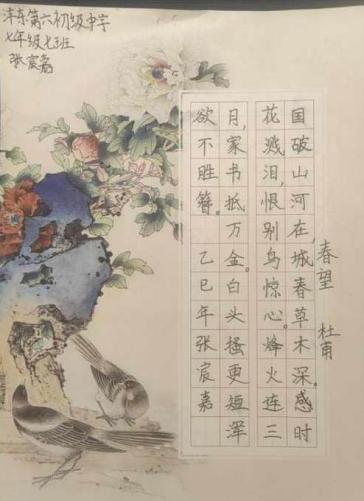 沣东第六初级中学
七年级七班
张宸嘉
春望 杜甫
国破山河在,城春草木深。感时
花溅泪,恨别鸟惊心。烽火连三
月,家书抵万金。白头搔更短浑
欲不胜簪。乙巳年张宸嘉